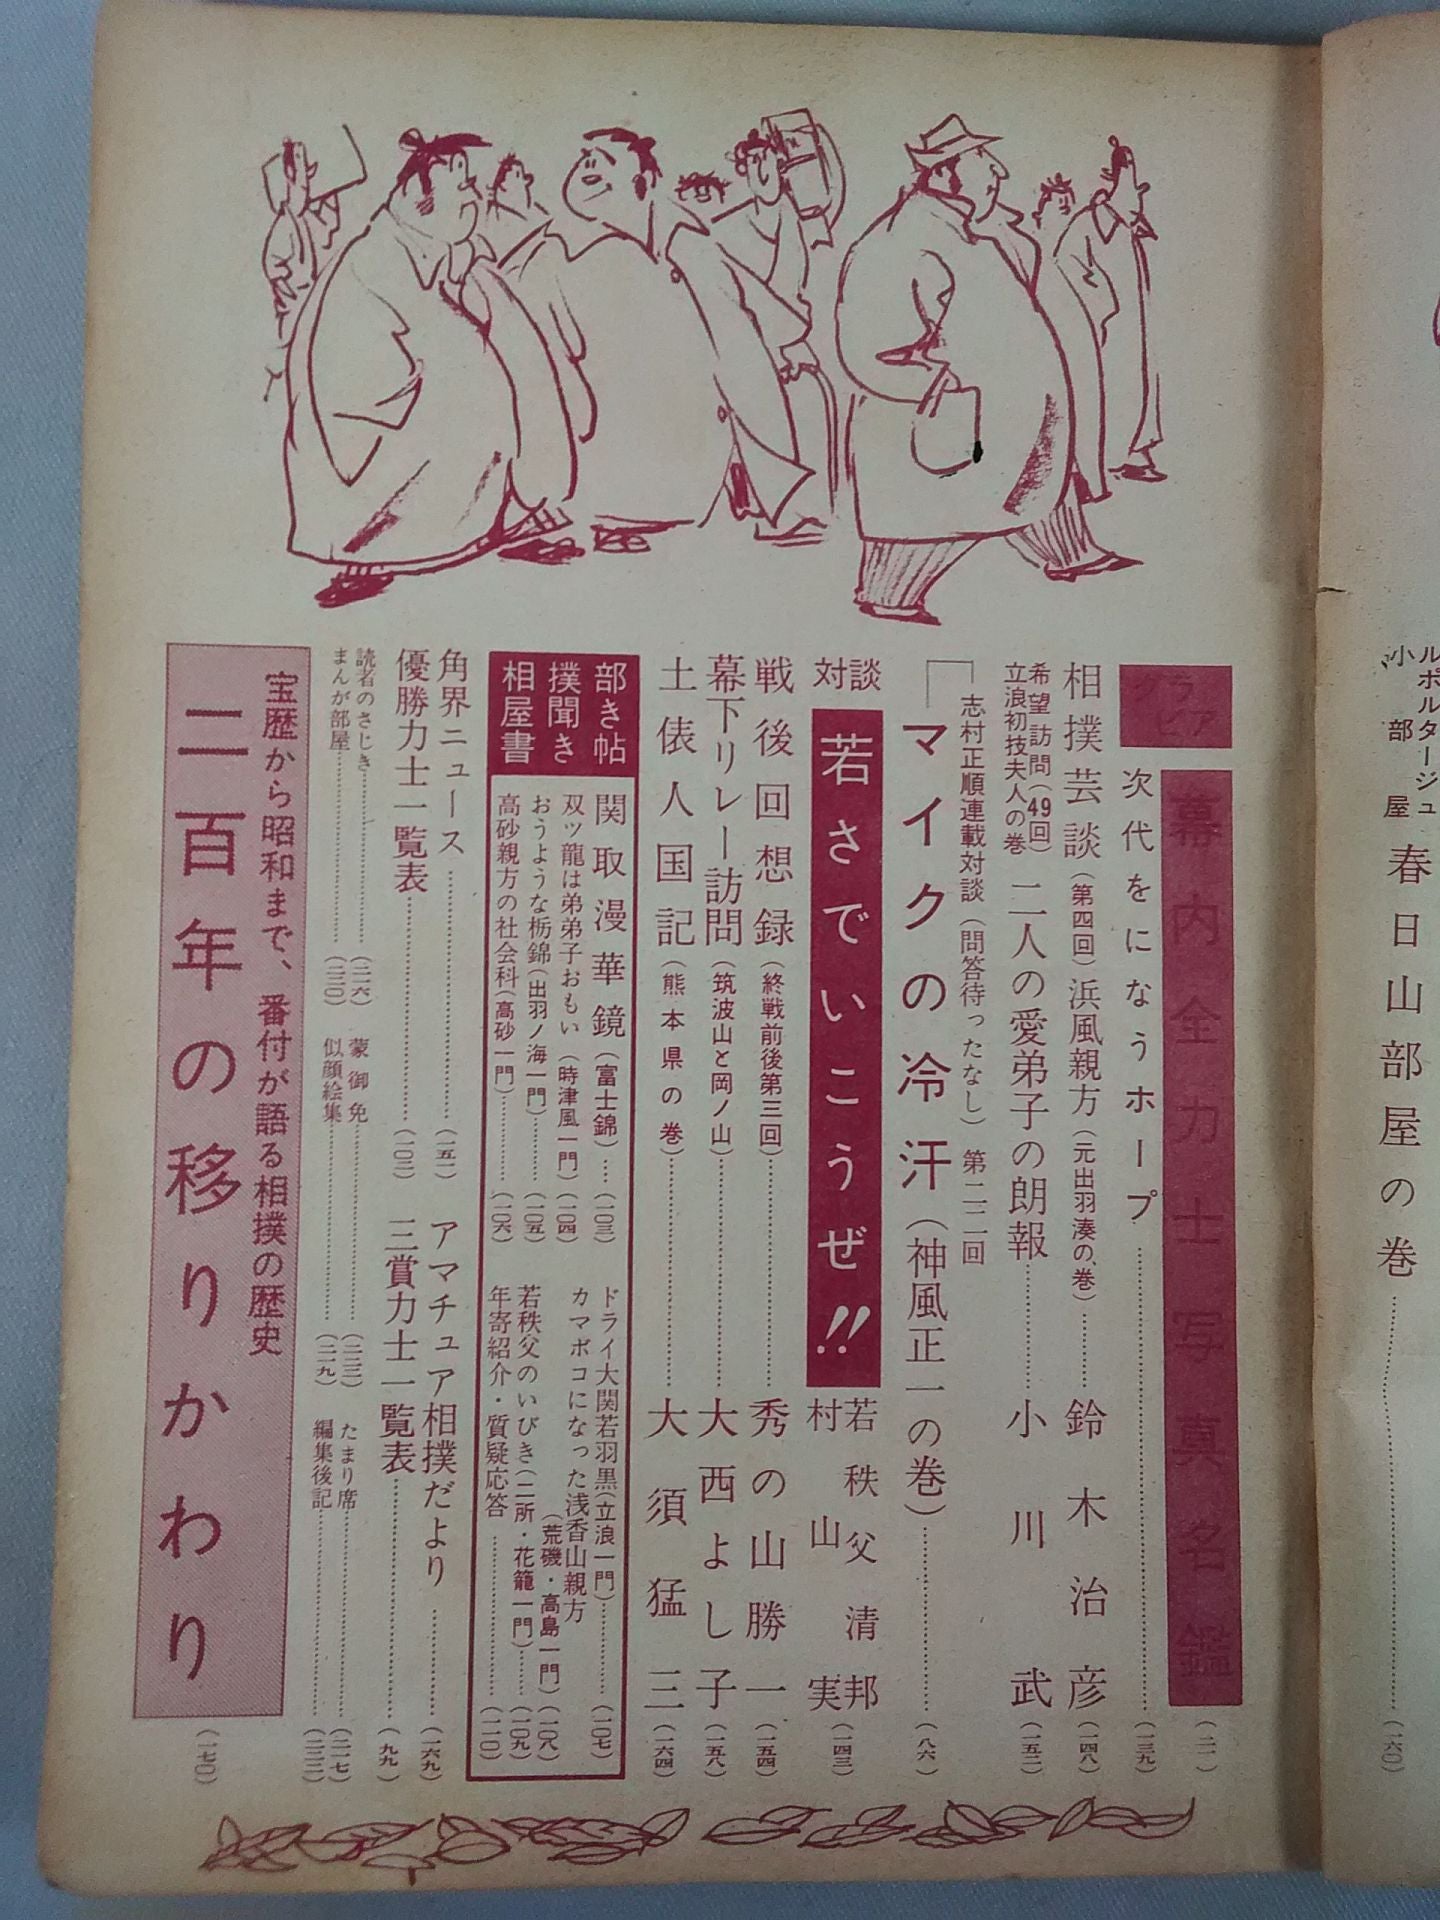 ルポルタージュ
小部屋
春日山部屋の巻
(一六〇)
グラビア
幕内全力士写真名鑑
(二一)
次代をになうホープ
(一三九)
相撲芸談(第四回)浜風親方(元出羽湊の巻)
鈴木治彦
(一四八)
希望訪問(49回)
立浪初技夫人の巻
二人の愛弟子の朗報
小川武
(一五二)
志村正順連載対談(問答待ったなし)第二二回
「マイクの冷汗(神風正一の巻)
(八六)
対談
若さでいこうぜ!!
若秩父清邦
村山実
(一四三)
戦後回想録(終戦前後第三回)
秀の山勝一
(一五四)
幕下リレー訪問(筑波山と岡ノ山)
大西よし子
(一五八)
土俵人国記(熊本県の巻)
大須猛三
(一六四)
相撲部屋聞き書き帖
関取漫華鏡(富士錦)
(一〇三)
双ツ龍は弟弟子おもい(時津風一門)
(一〇四)
おうような栃錦(出羽ノ海一門)
(一〇五)
高砂親方の社会科(高砂一門)
(一〇六)
ドライ大関若羽黒(立浪一門)
(一〇七)
カマボコになった浅香山親方
(荒磯・高島一門)
(一〇八)
若秩父のいびき(二所・花籠一門)
(一〇九)
年寄紹介・質疑応答
(一一〇)
角界ニュース
(一五一)
アマチュア相撲だより
(一六九)
優勝力士一覧表
(一〇二)
三賞力士一覧表
(九九)
読者のさじき
(二一六)
蒙御免
(二二三)
たまり席
(二一七)
まんが部屋
(二二〇)
似顔絵集
(二一九)
編集後記
(二二二)
宝歴から昭和まで、番付が語る相撲の歴史
二百年の移りかわり
(一七〇)